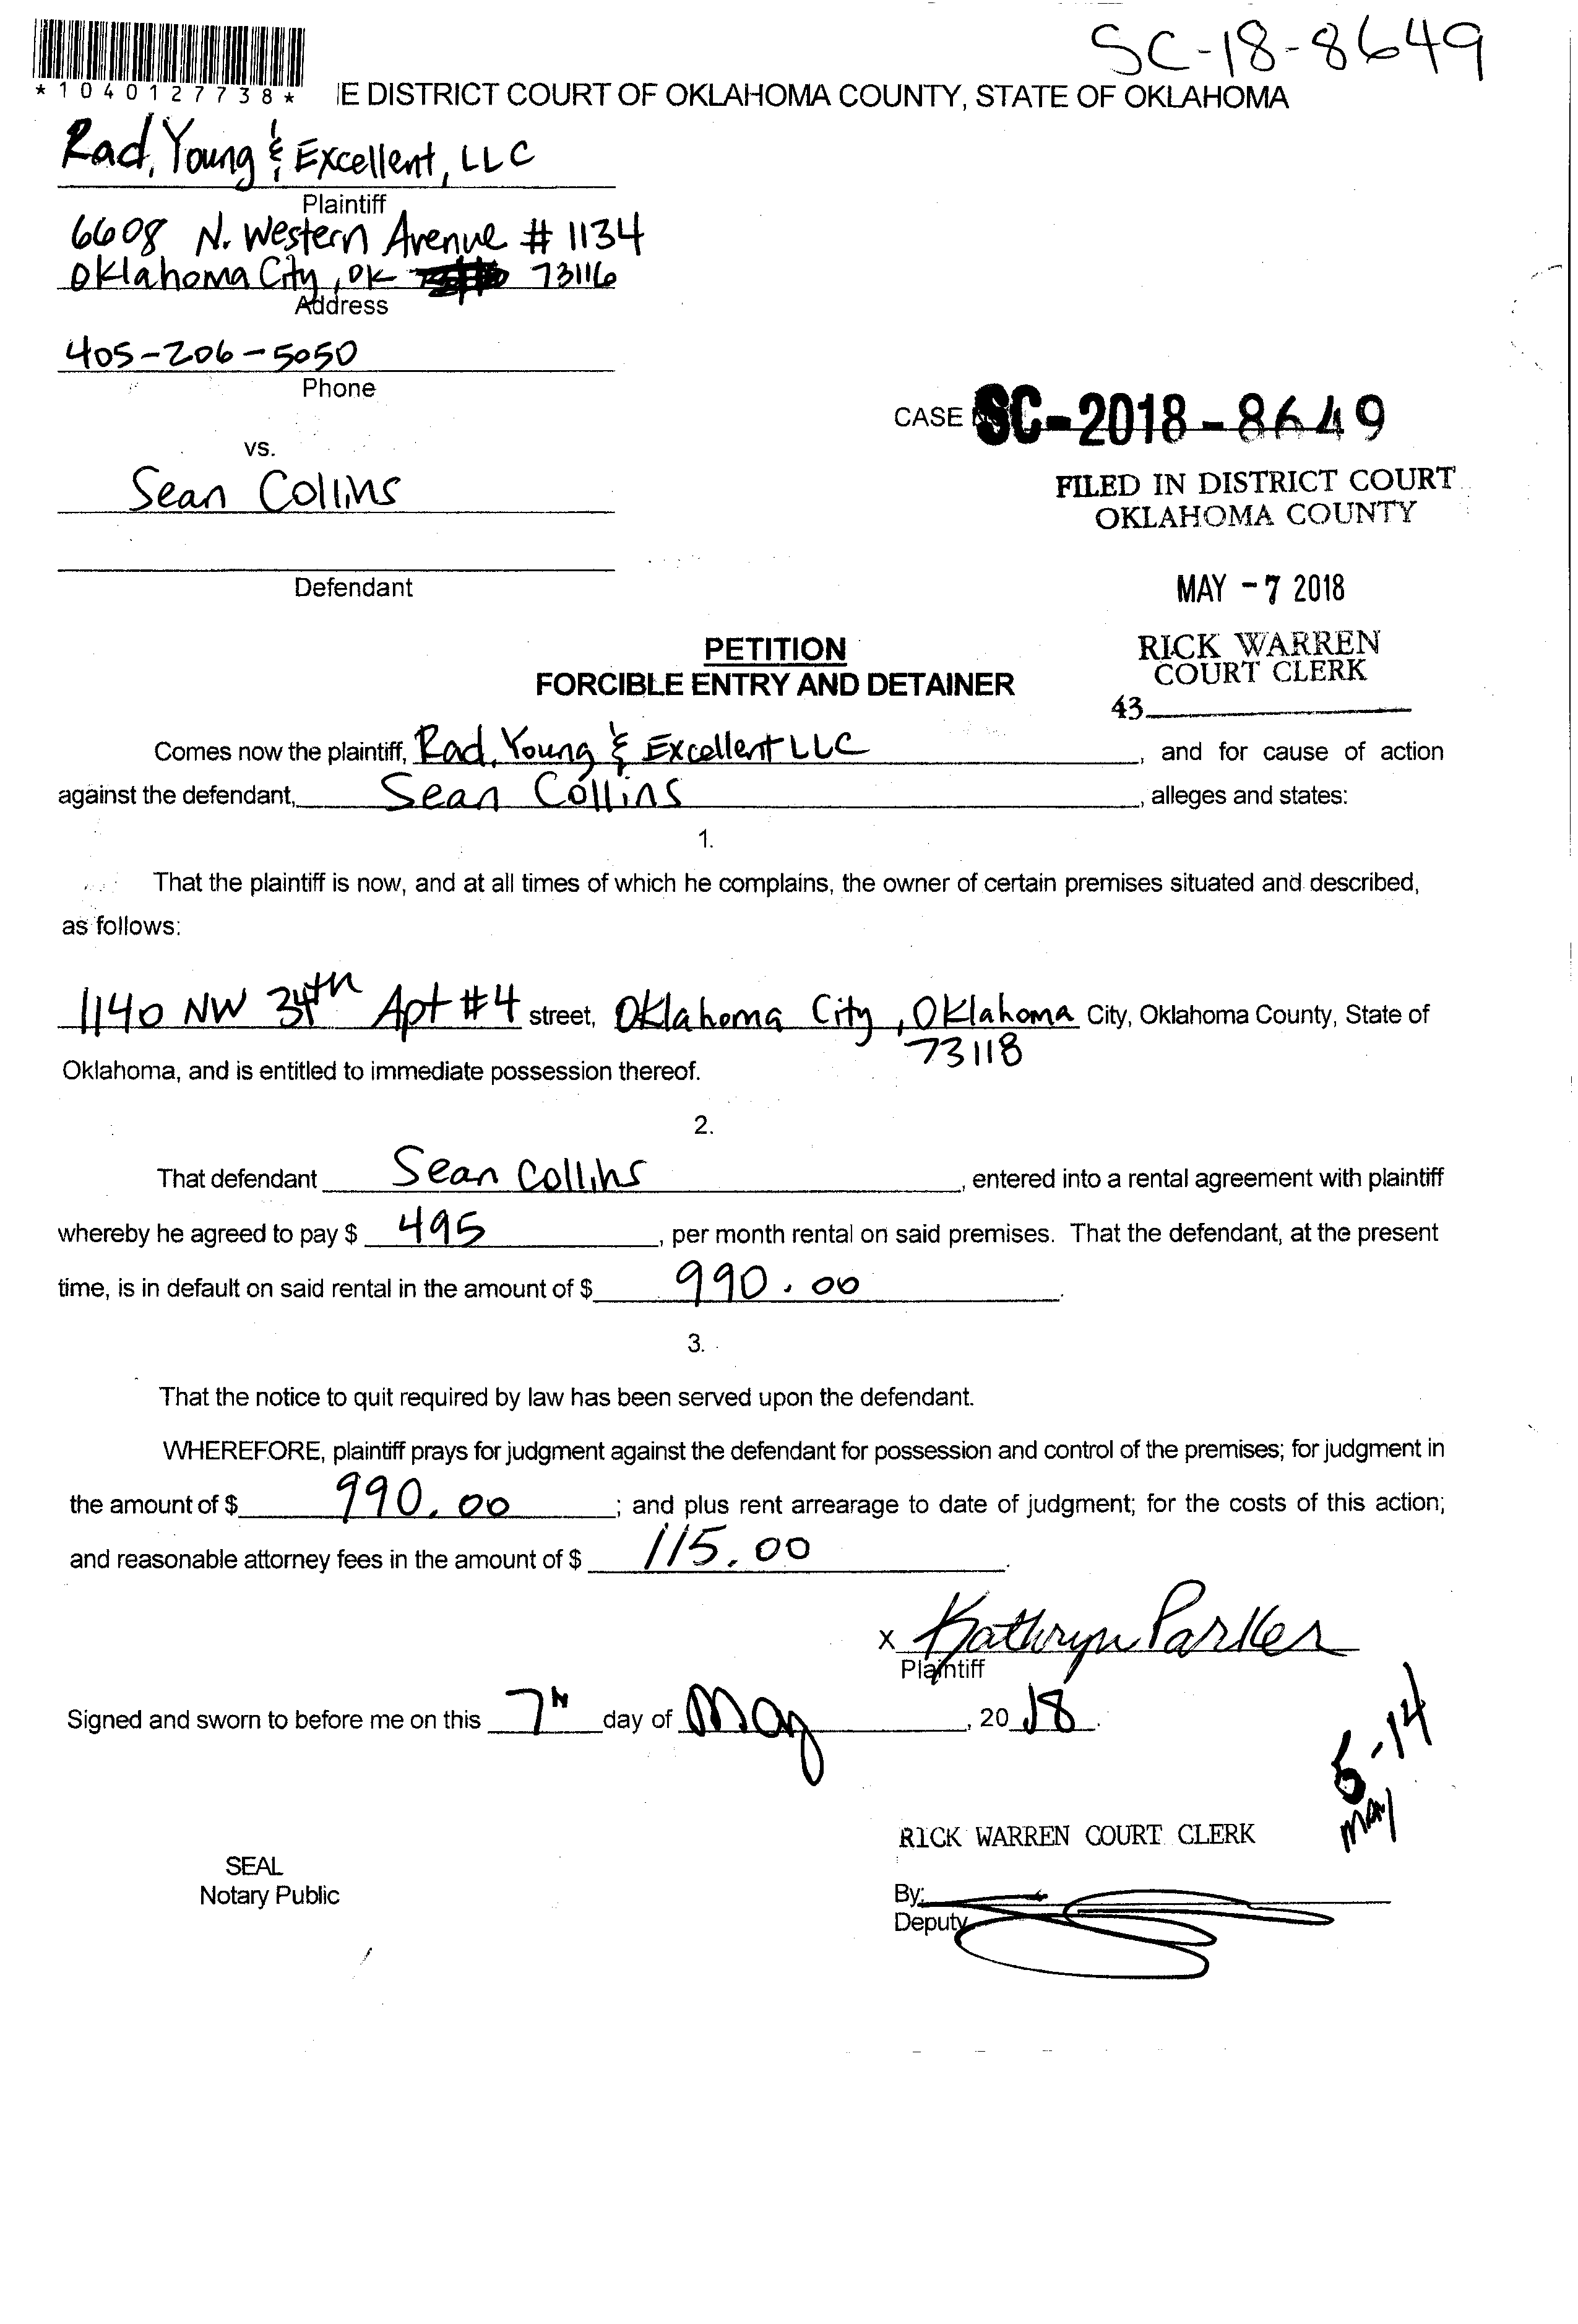 SC-18-8649
*1040127738*
IE DISTRICT COURT OF OKLAHOMA COUNTY, STATE OF OKLAHOMA
Rad, Young & Excellent, LLC
Plaintiff
6608 N. Western Avenue # 1134
Oklahoma City, OK 73116
Address
405-206-5050
Phone
CASE SC-2018-8649
vs.
Sean Collins
FILED IN DISTRICT COURT
OKLAHOMA COUNTY
Defendant
MAY -7 2018
PETITION
FORCIBLE ENTRY AND DETAINER
RICK WARREN
COURT CLERK
43
Comes now the plaintiff, Rad, Young & Excellent LLC, and for cause of action
against the defendant, Sean Collins, alleges and states:
1.
That the plaintiff is now, and at all times of which he complains, the owner of certain premises situated and described,
as follows:
1140 NW 34th Apt #4 street, Oklahoma City, Oklahoma City, Oklahoma County, State of
73118
Oklahoma, and is entitled to immediate possession thereof.
2.
That defendant Sean Collins, entered into a rental agreement with plaintiff
whereby he agreed to pay $ 495, per month rental on said premises. That the defendant, at the present
time, is in default on said rental in the amount of $ 990.00.
3.
That the notice to quit required by law has been served upon the defendant.
WHEREFORE, plaintiff prays for judgment against the defendant for possession and control of the premises; for judgment in
the amount of $ 990.00; and plus rent arrearage to date of judgment; for the costs of this action;
and reasonable attorney fees in the amount of $ 115.00.
x Kathryn Parker
Plaintiff
Signed and sworn to before me on this 7th day of May, 2018.
5-14
May
RICK WARREN COURT CLERK
SEAL
Notary Public
By:
Deputy